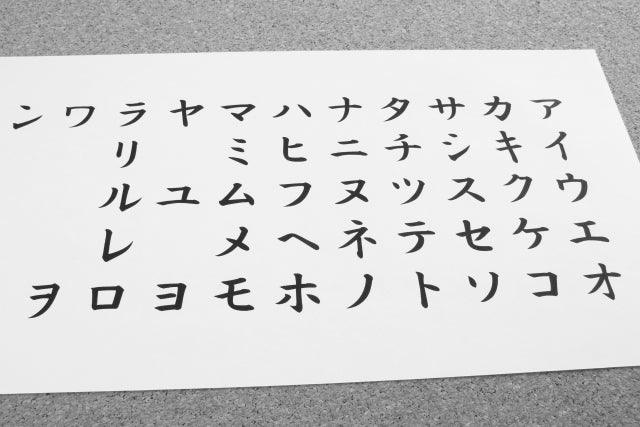 アイウエオ
カキクケコ
サシスセソ
タチツテト
ナニヌネノ
ハヒフヘホ
マミムメモ
ヤユヨ
ラリルレロ
ワヲ
ン